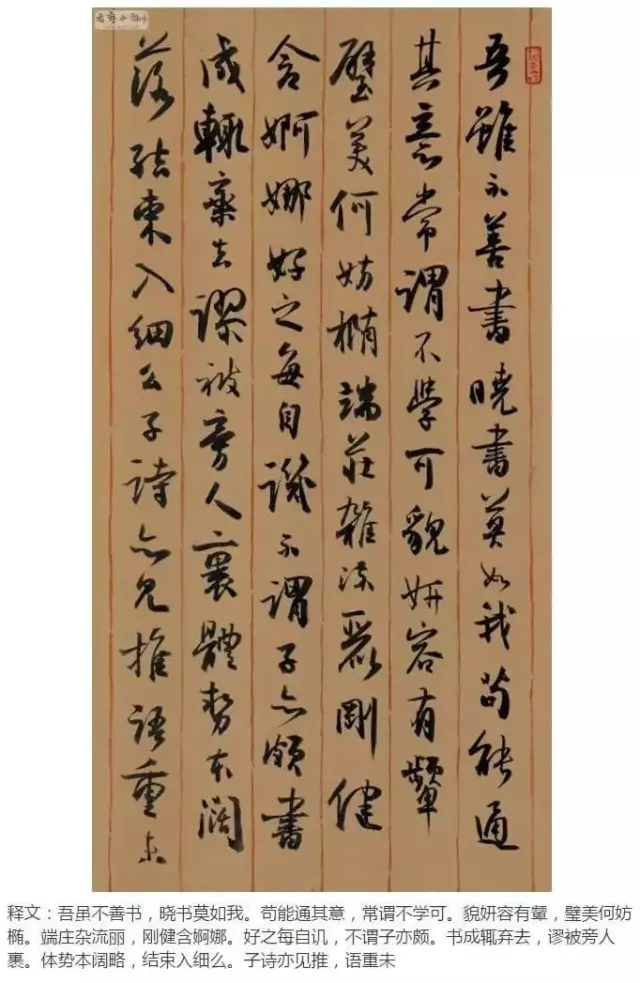 吾雖不善書曉書莫如我苟能通
其意常謂不學可貌妍容有顰
璧美何妨橢端莊雜流麗剛健
含婀娜好之每自譏不謂子亦頗書
成輒棄去謬被旁人裹體勢本闊
落結束入細么子詩亦見推語重未
释文：吾虽不善书，晓书莫如我。苟能通其意，常谓不学可。貌妍容有颦，璧美何妨
椭。端庄杂流丽，刚健含婀娜。好之每自讥，不谓子亦颇。书成辄弃去，谬被旁人
裹。体势本阔略，结束入细么。子诗亦见推，语重未